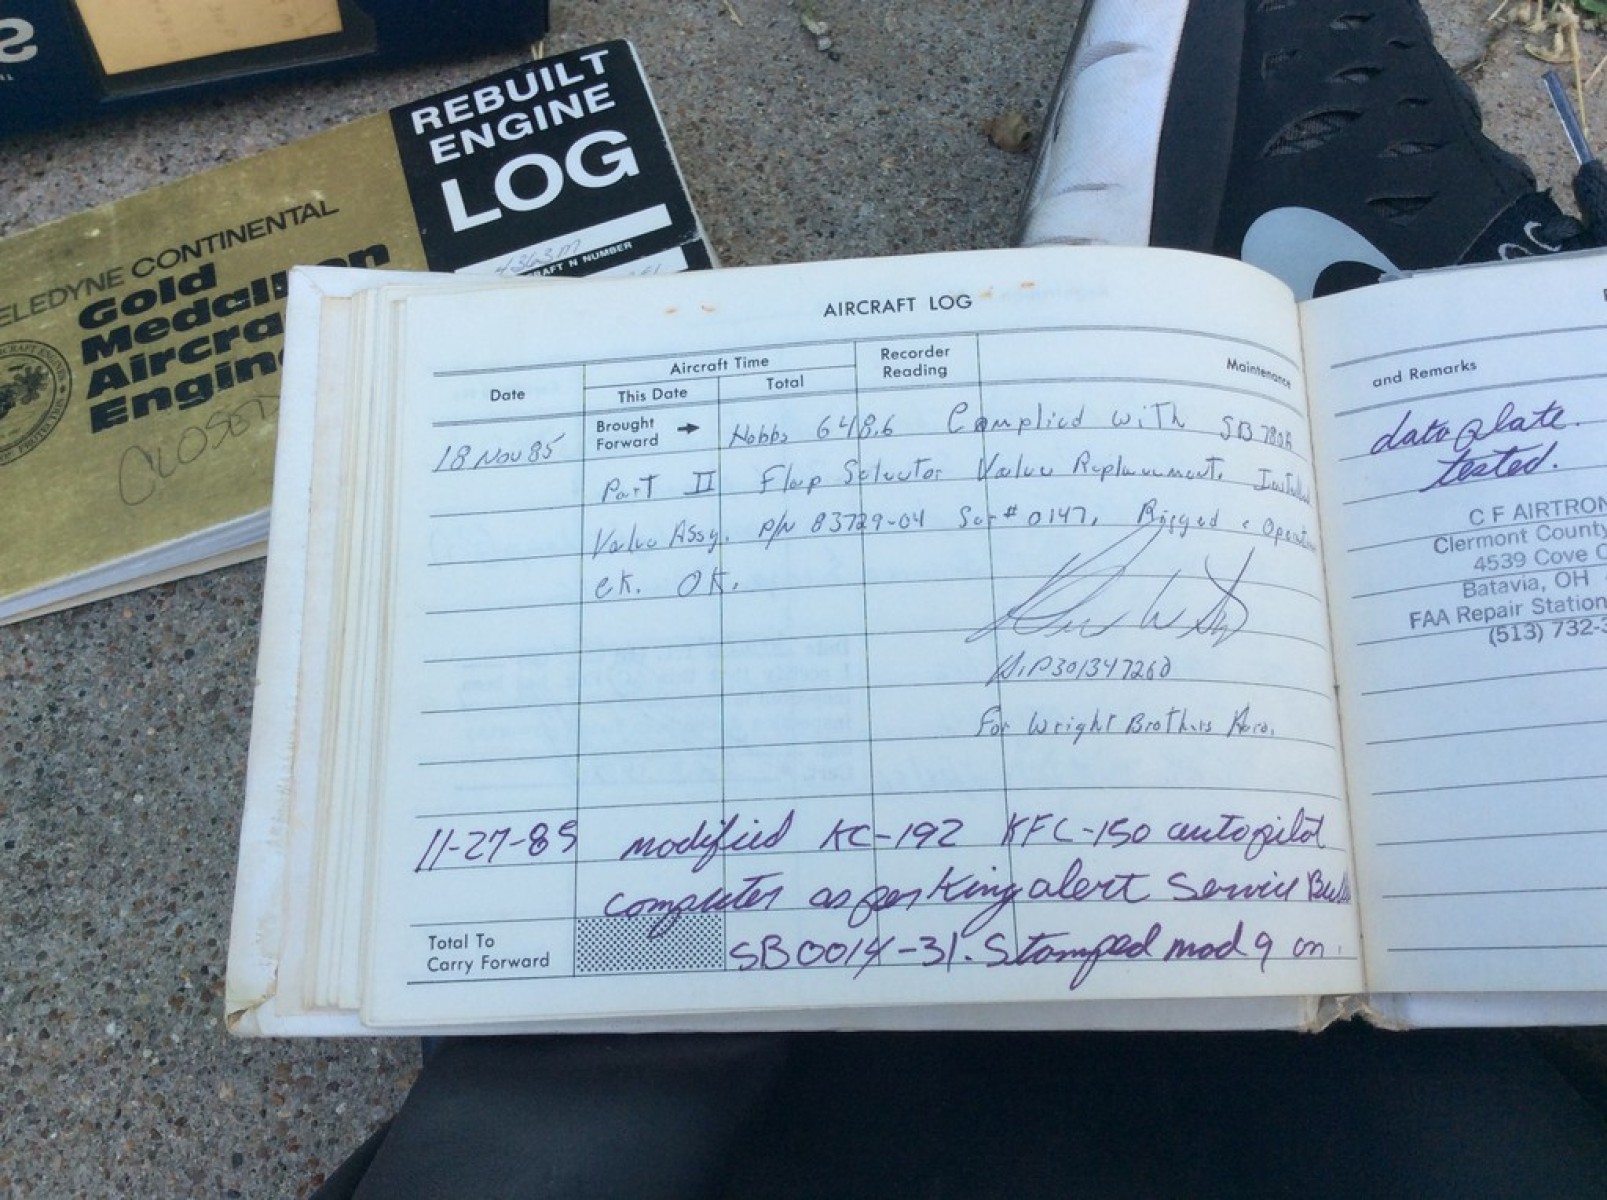 REBUILT
ENGINE
LOG
4363M
AIRCRAFT N NUMBER
TELEDYNE CONTINENTAL
Gold
Medallion
Aircra
Engin
CLOSED
AIRCRAFT LOG
Date
Aircraft Time
This Date
Total
Recorder
Reading
Maintenance
and Remarks
Brought
Forward
18 Nov 85 Hobbs 648.6 Complied with SB 780A
Part II Flap Selector Valve Replacement. Installed
Valve Assy. P/N 83729-04 Ser# 0147. Rigged & Operation
ck. OK.
301347260
For Wright Brothers Aero.
11-27-85 modified KC-192 KFC-150 autopilot
computer as per King alert Service
SB0014-31. Stamped mod 9 on
Total To
Carry Forward
data plate.
tested.
C F AIRTRON
Clermont County
4539 Cove C
Batavia, OH
FAA Repair Station
(513) 732-3